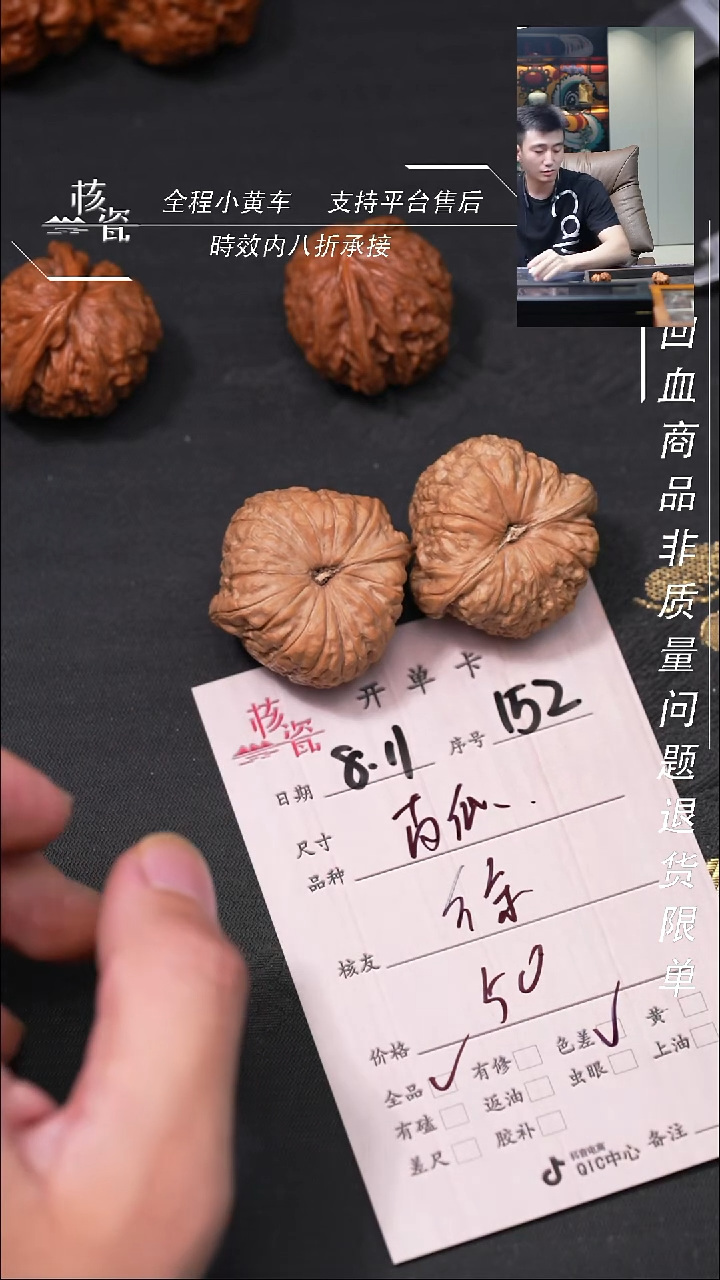 核瓷
全程小黄车 支持平台售后
時效内八折承接
Cal
回血商品非质量问题退货限单
开单卡
核瓷
日期 8.11 序号 152
尺寸
品种
核友 徐
价格 50
全品 ✓ 有修 色差 ✓ 黄
有磕 返油 虫眼 上油
差尺 胶补
抖音电商
QIC中心 备注